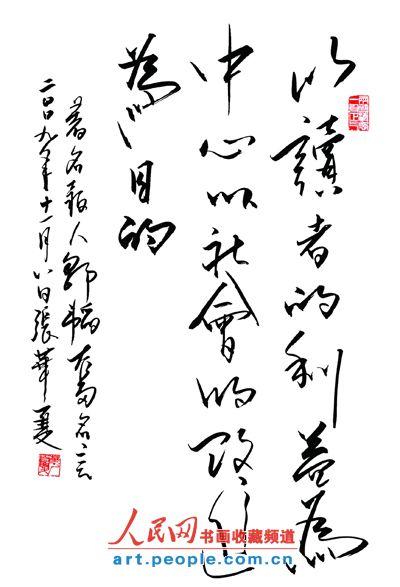 以讀者的利益為
中心以社會的改進
為目的
著名報人鄒韜奮名言
二〇〇九年十一月八日張華夏
人民网 书画收藏频道
art.people.com.cn